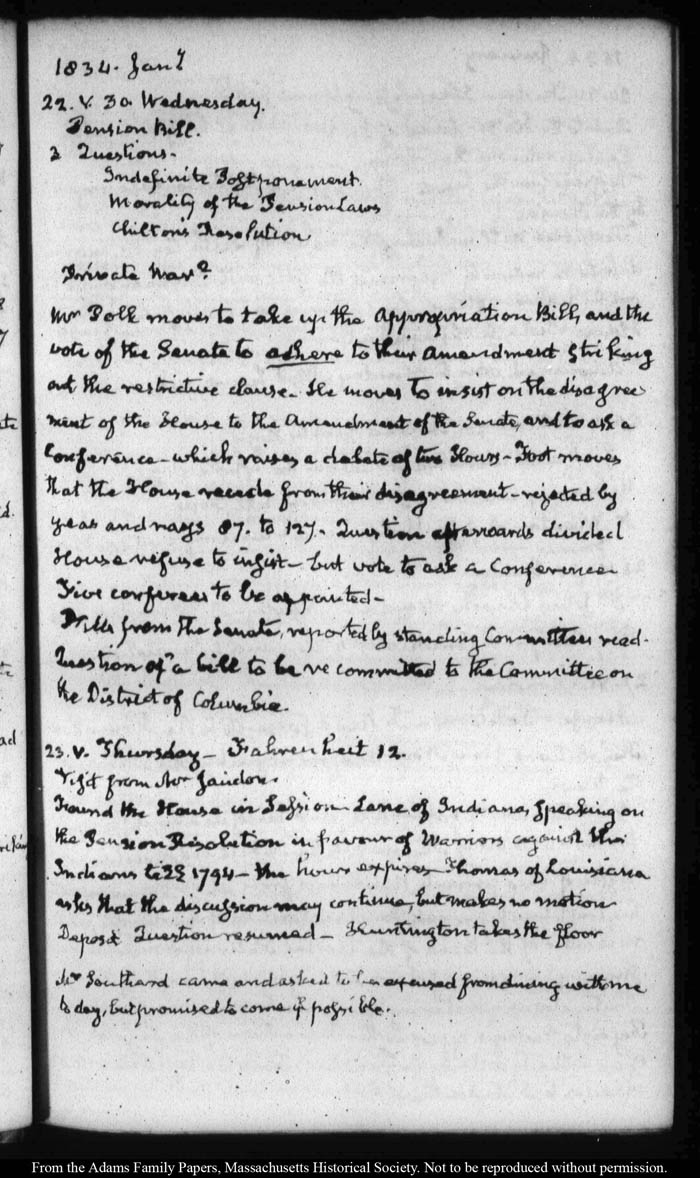 1834. Jany
22. V. 30 Wednesday.
Pension Bill.
3 Questions.
Indefinite Postponement.
Morality of the Pension Laws
Chilton's Resolution
Private War?
Mr Polk moves to take up the Appropriation Bill, and the
vote of the Senate to adhere to their Amendment striking
out the restrictive clause. He moves to insist on the disagree
ment of the House to the Amendment of the Senate, and to ask a
Conference – which raises a debate of two Hours – Foot moves
that the House recede from their disagreement – rejected by
yeas and nays 87. to 127. Question afterwards divided
House refuse to insist – but vote to ask a Conference
Five conferees to be appointed –
Bills from the Senate, reported by standing Committees read.
Question of a bill to be recommitted to the Committee on
the District of Columbia.
23. V. Thursday – Fahrenheit 12.
Visit from Mr Jaudon.
Found the House in Session. Lane of Indiana, speaking on
the Pension Resolution in favour of Warriors against the
Indians till 1794 – the hour expires Thomas of Louisiana
asks that the discussion may continue, but makes no motion
Deposit Question resumed – Huntington takes the floor
Mr Southard came and asked to be excused from dining with me
to day, but promised to come if possible.
From the Adams Family Papers, Massachusetts Historical Society. Not to be reproduced without permission.